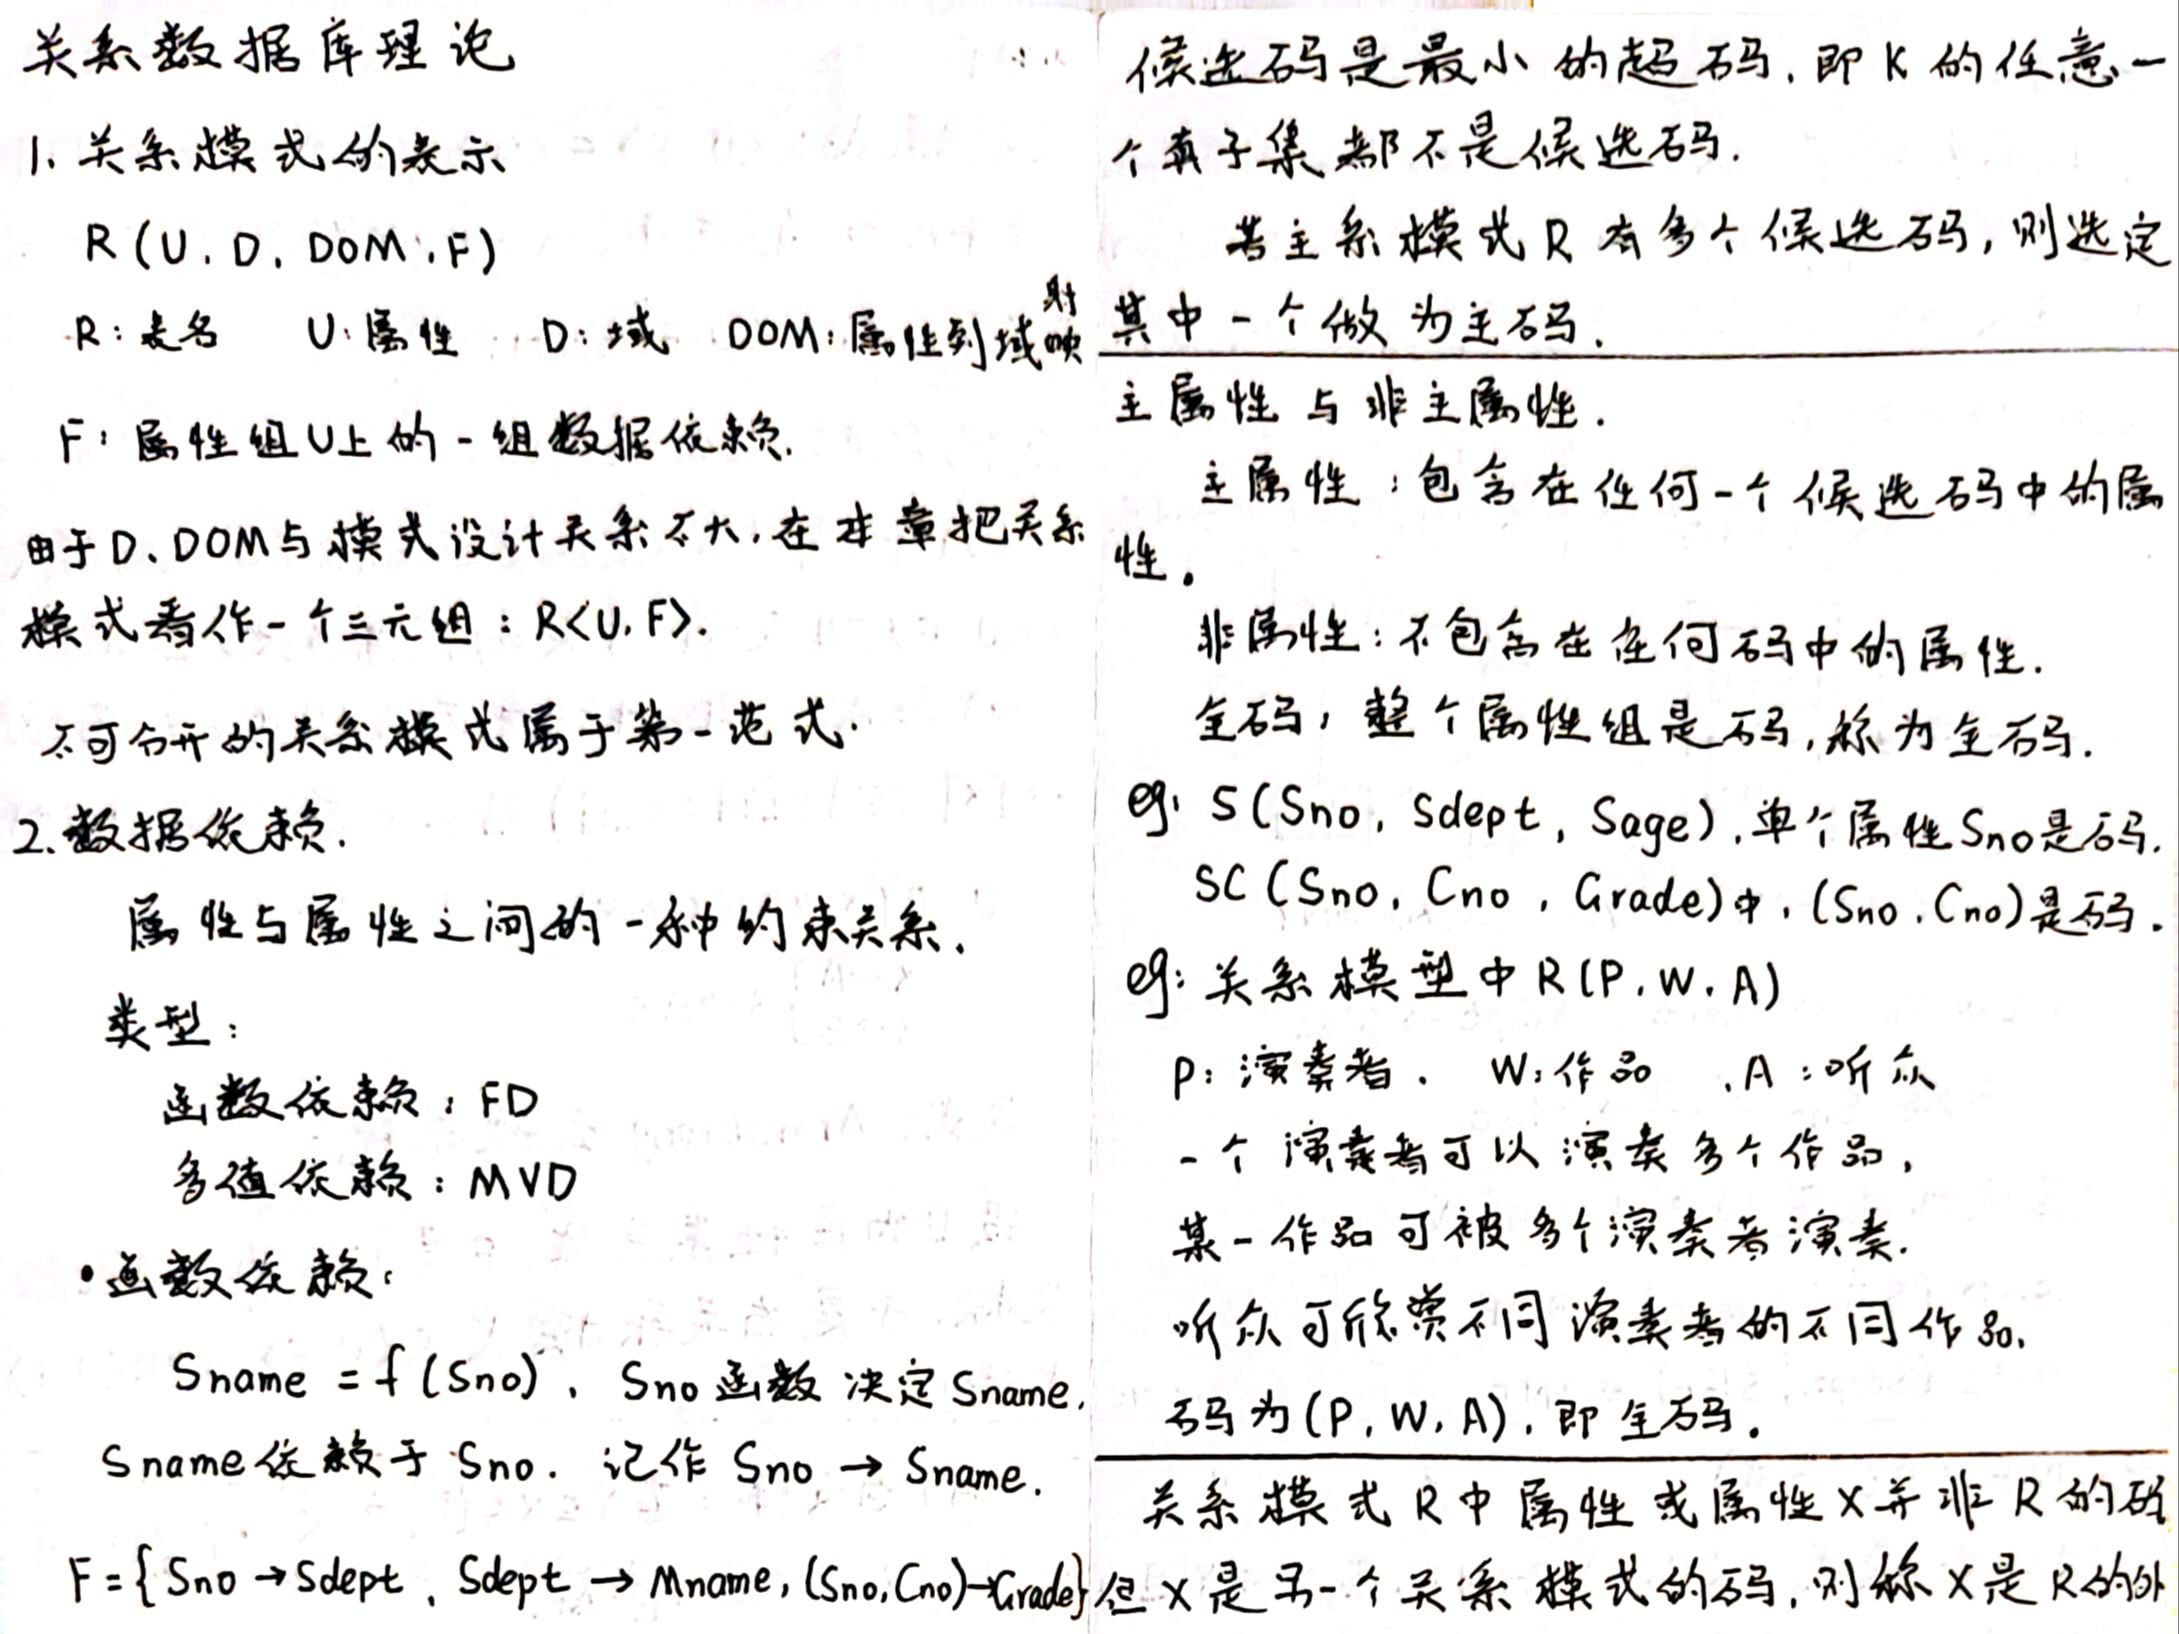 关系数据库理论
1. 关系模式的表示
R(U, D, DOM, F)
R:表名 U:属性 D:域 DOM:属性到域映射
F:属性组U上的一组数据依赖.
由于D、DOM与模式设计关系不大,在本章把关系
模式看作一个三元组:R<U,F>.
不可分开的关系模式属于第一范式.
2.数据依赖.
属性与属性之间的一种约束关系.
类型:
函数依赖:FD
多值依赖:MVD
•函数依赖:
Sname = f(Sno), Sno函数决定Sname,
Sname依赖于Sno. 记作 Sno → Sname.
F={Sno→Sdept, Sdept → Mname, (Sno,Cno)→Grade}
候选码是最小的超码,即K的任意一
个真子集都不是候选码.
若主系模式R有多个候选码,则选定
其中一个做为主码.
主属性与非主属性.
主属性:包含在任何一个候选码中的属
性。
非属性:不包含在任何码中的属性.
全码,整个属性组是码,称为全码.
eg: S(Sno, Sdept, Sage),单个属性Sno是码.
SC(Sno, Cno, Grade)中,(Sno,Cno)是码.
eg:关系模型中R(P,W,A)
P:演奏者. W:作品 ,A:听众
一个演奏者可以演奏多个作品,
某一作品可被多个演奏者演奏.
听众可欣赏不同演奏者的不同作品.
码为(P,W,A),即全码.
关系模式R中属性或属性X并非R的码
但X是另一个关系模式的码,则称X是R的外